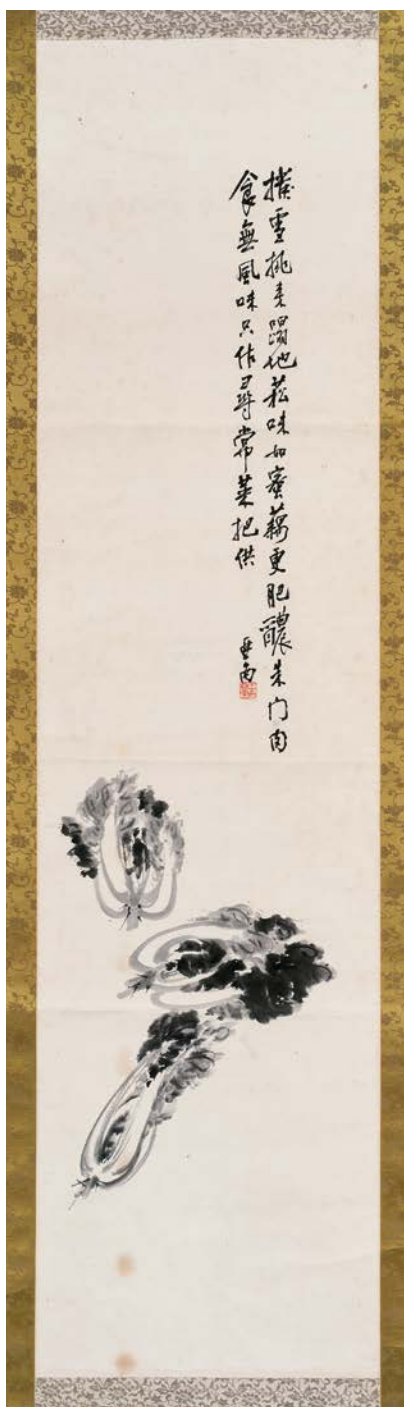 撥雪挑来蹋地菘味如蜜藕更肥醲朱门肉
食無風味只作尋常菜把供
亞南